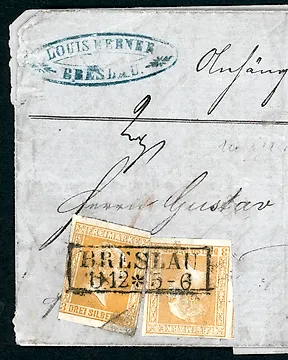 LOUIS WERNER
BRESLAU.
Anhäng
Herrn Gustav
FREIMARKE
BRESLAU
11 12 * 5-6
DREI SILBER
FREIMARKE